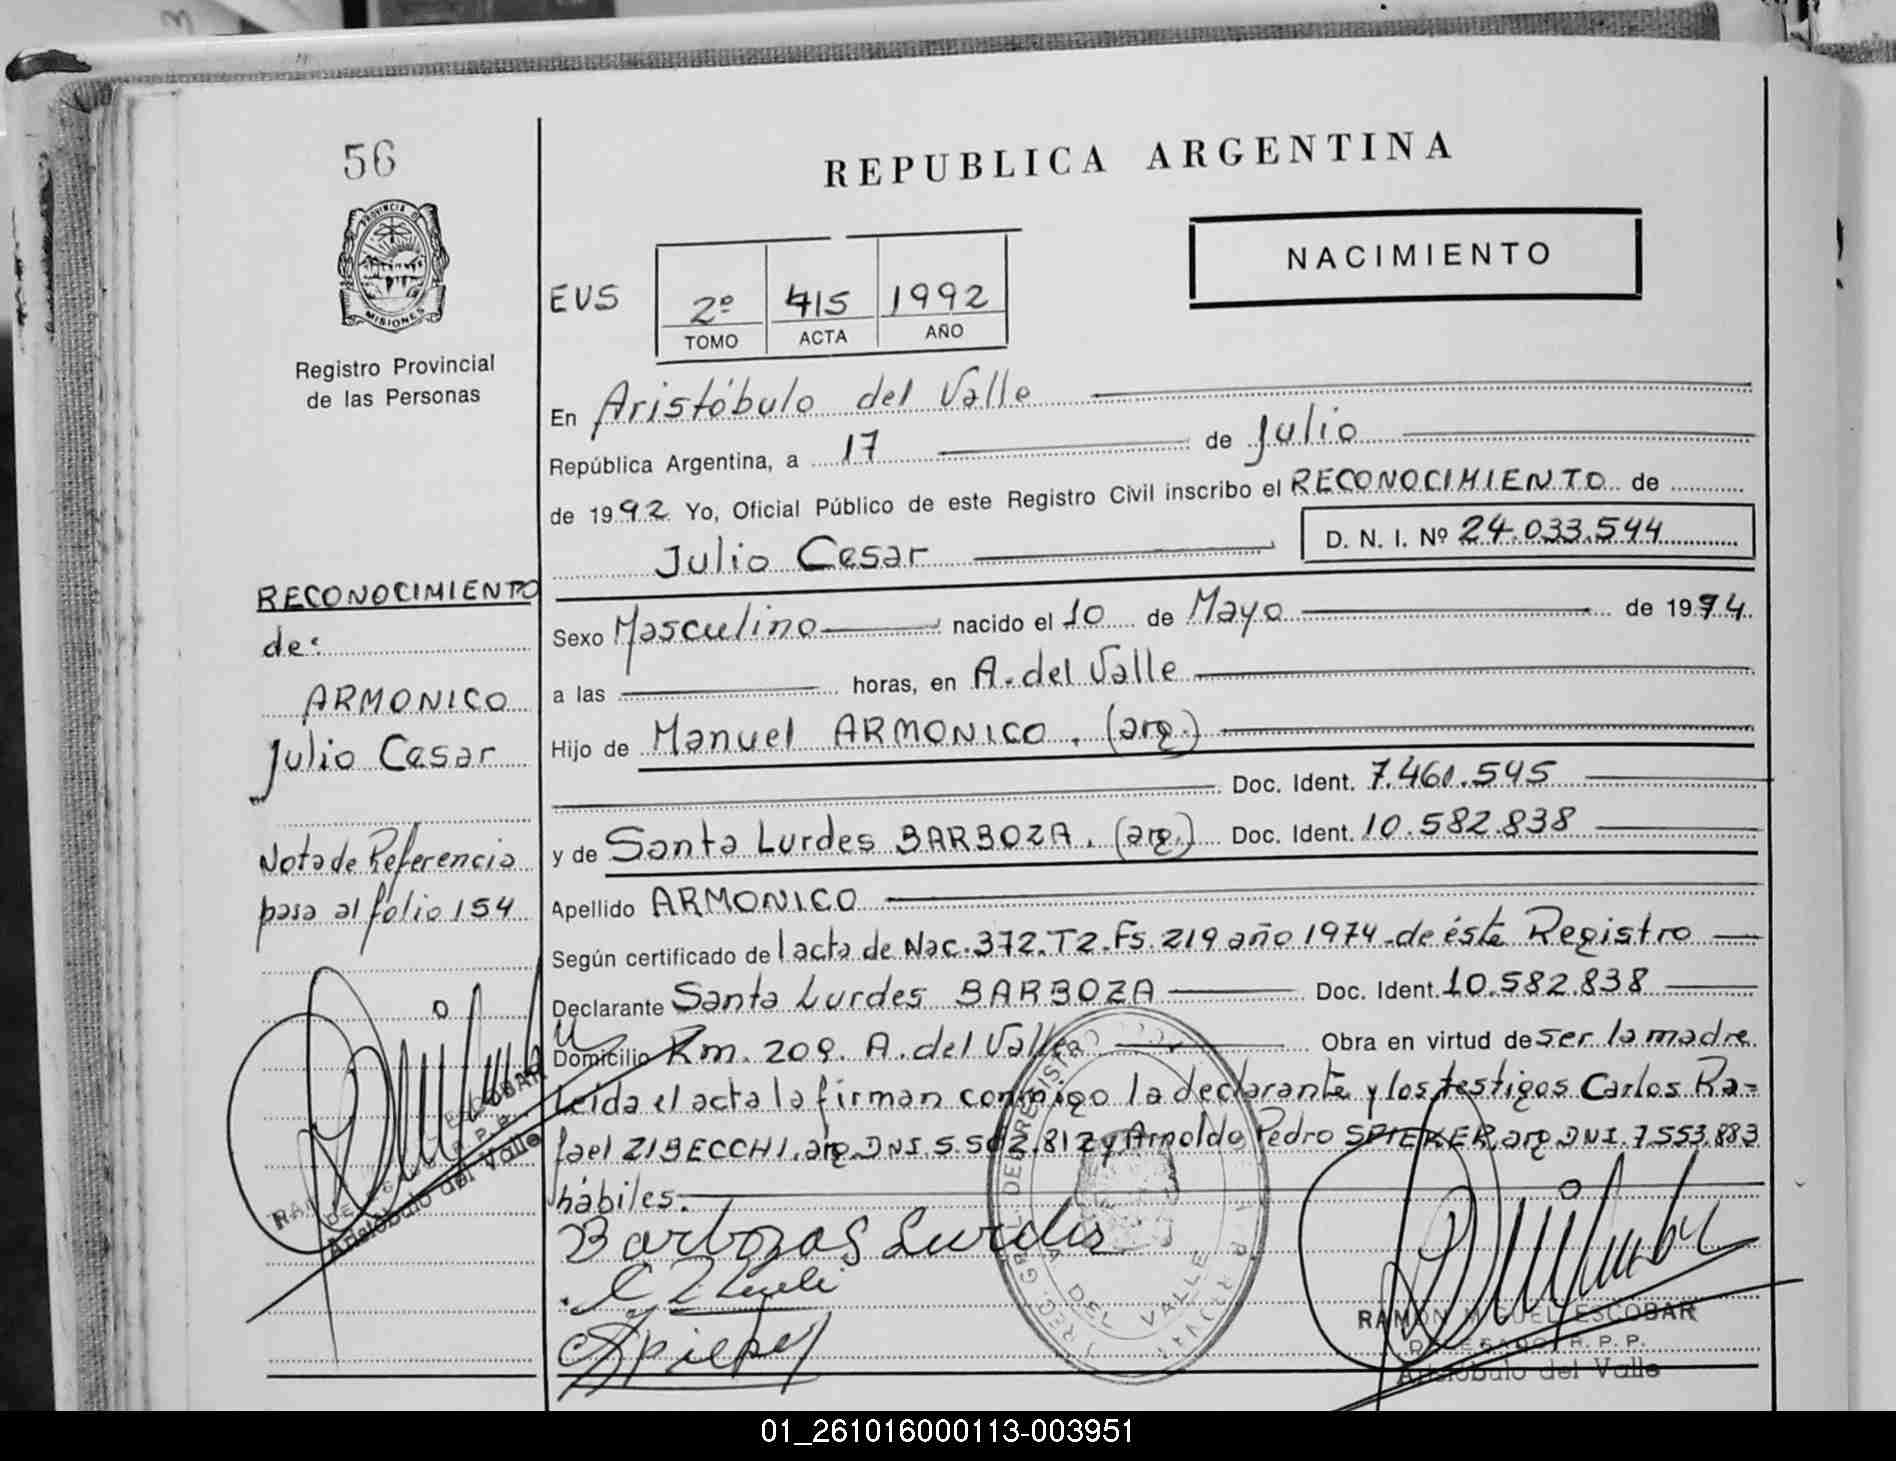 56
REPUBLICA ARGENTINA
PROVINCIA DE
MISIONES
Registro Provincial
de las Personas
NACIMIENTO
EVS
2º 415 1992
TOMO ACTA AÑO
En Aristóbulo del Valle
República Argentina, a 17 de Julio
de 1992 Yo, Oficial Público de este Registro Civil inscribo el RECONOCIMIENTO de
Julio Cesar D. N. I. Nº 24.033.544
RECONOCIMIENTO
de:
ARMONICO
Julio Cesar
Nota de Referencia
pasa al folio 154
Sexo Masculino nacido el 10 de Mayo de 1974.
a las horas, en A. del Valle
Hijo de Manuel ARMONICO. (arg.)
Doc. Ident. 7.461.545
y de Santa Lurdes BARBOZA. (arg.) Doc. Ident. 10.582.838
Apellido ARMONICO
Según certificado de l acta de Nac. 372. T2. Fs. 219 año 1974 - de éste Registro
Declarante Santa Lurdes BARBOZA Doc. Ident. 10.582.838
Domicilio Km. 209. A. del Valle Obra en virtud de ser la madre
Leída el acta la firman conmigo la declarante y los testigos Carlos Ra=
fael ZIBECCHI. arg. DNI. 5.502.812 y Arnoldo Pedro SPIEKER, arg DNI. 7.553.883
hábiles.
Barbozas Lurdis
RAMÓN MIGUEL ESCOBAR
R. P. P.
Aristóbulo del Valle
ESCOBAR
R. P. P.
Aristóbulo del Valle
REG. GRAL. DEL REGISTRO
DEL VALLE
01_261016000113-003951